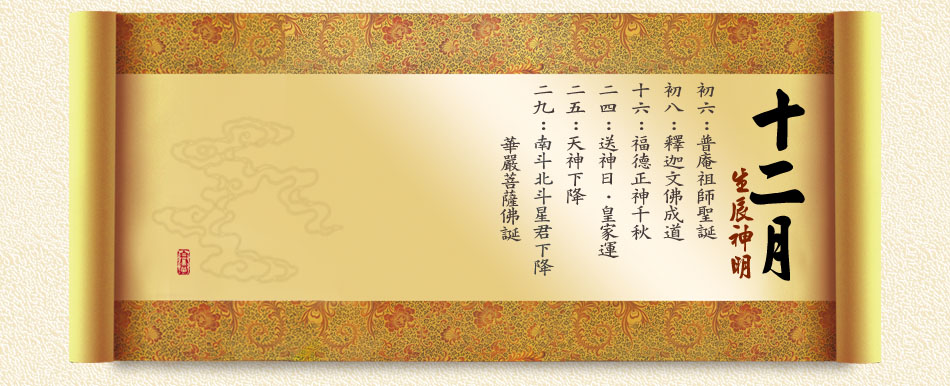 十二月
生辰神明
初六：普庵祖師聖誕
初八：釋迦文佛成道
十六：福德正神千秋
二四：送神日．皇家運
二五：天神下降
二九：南斗北斗星君下降
華嚴菩薩佛誕